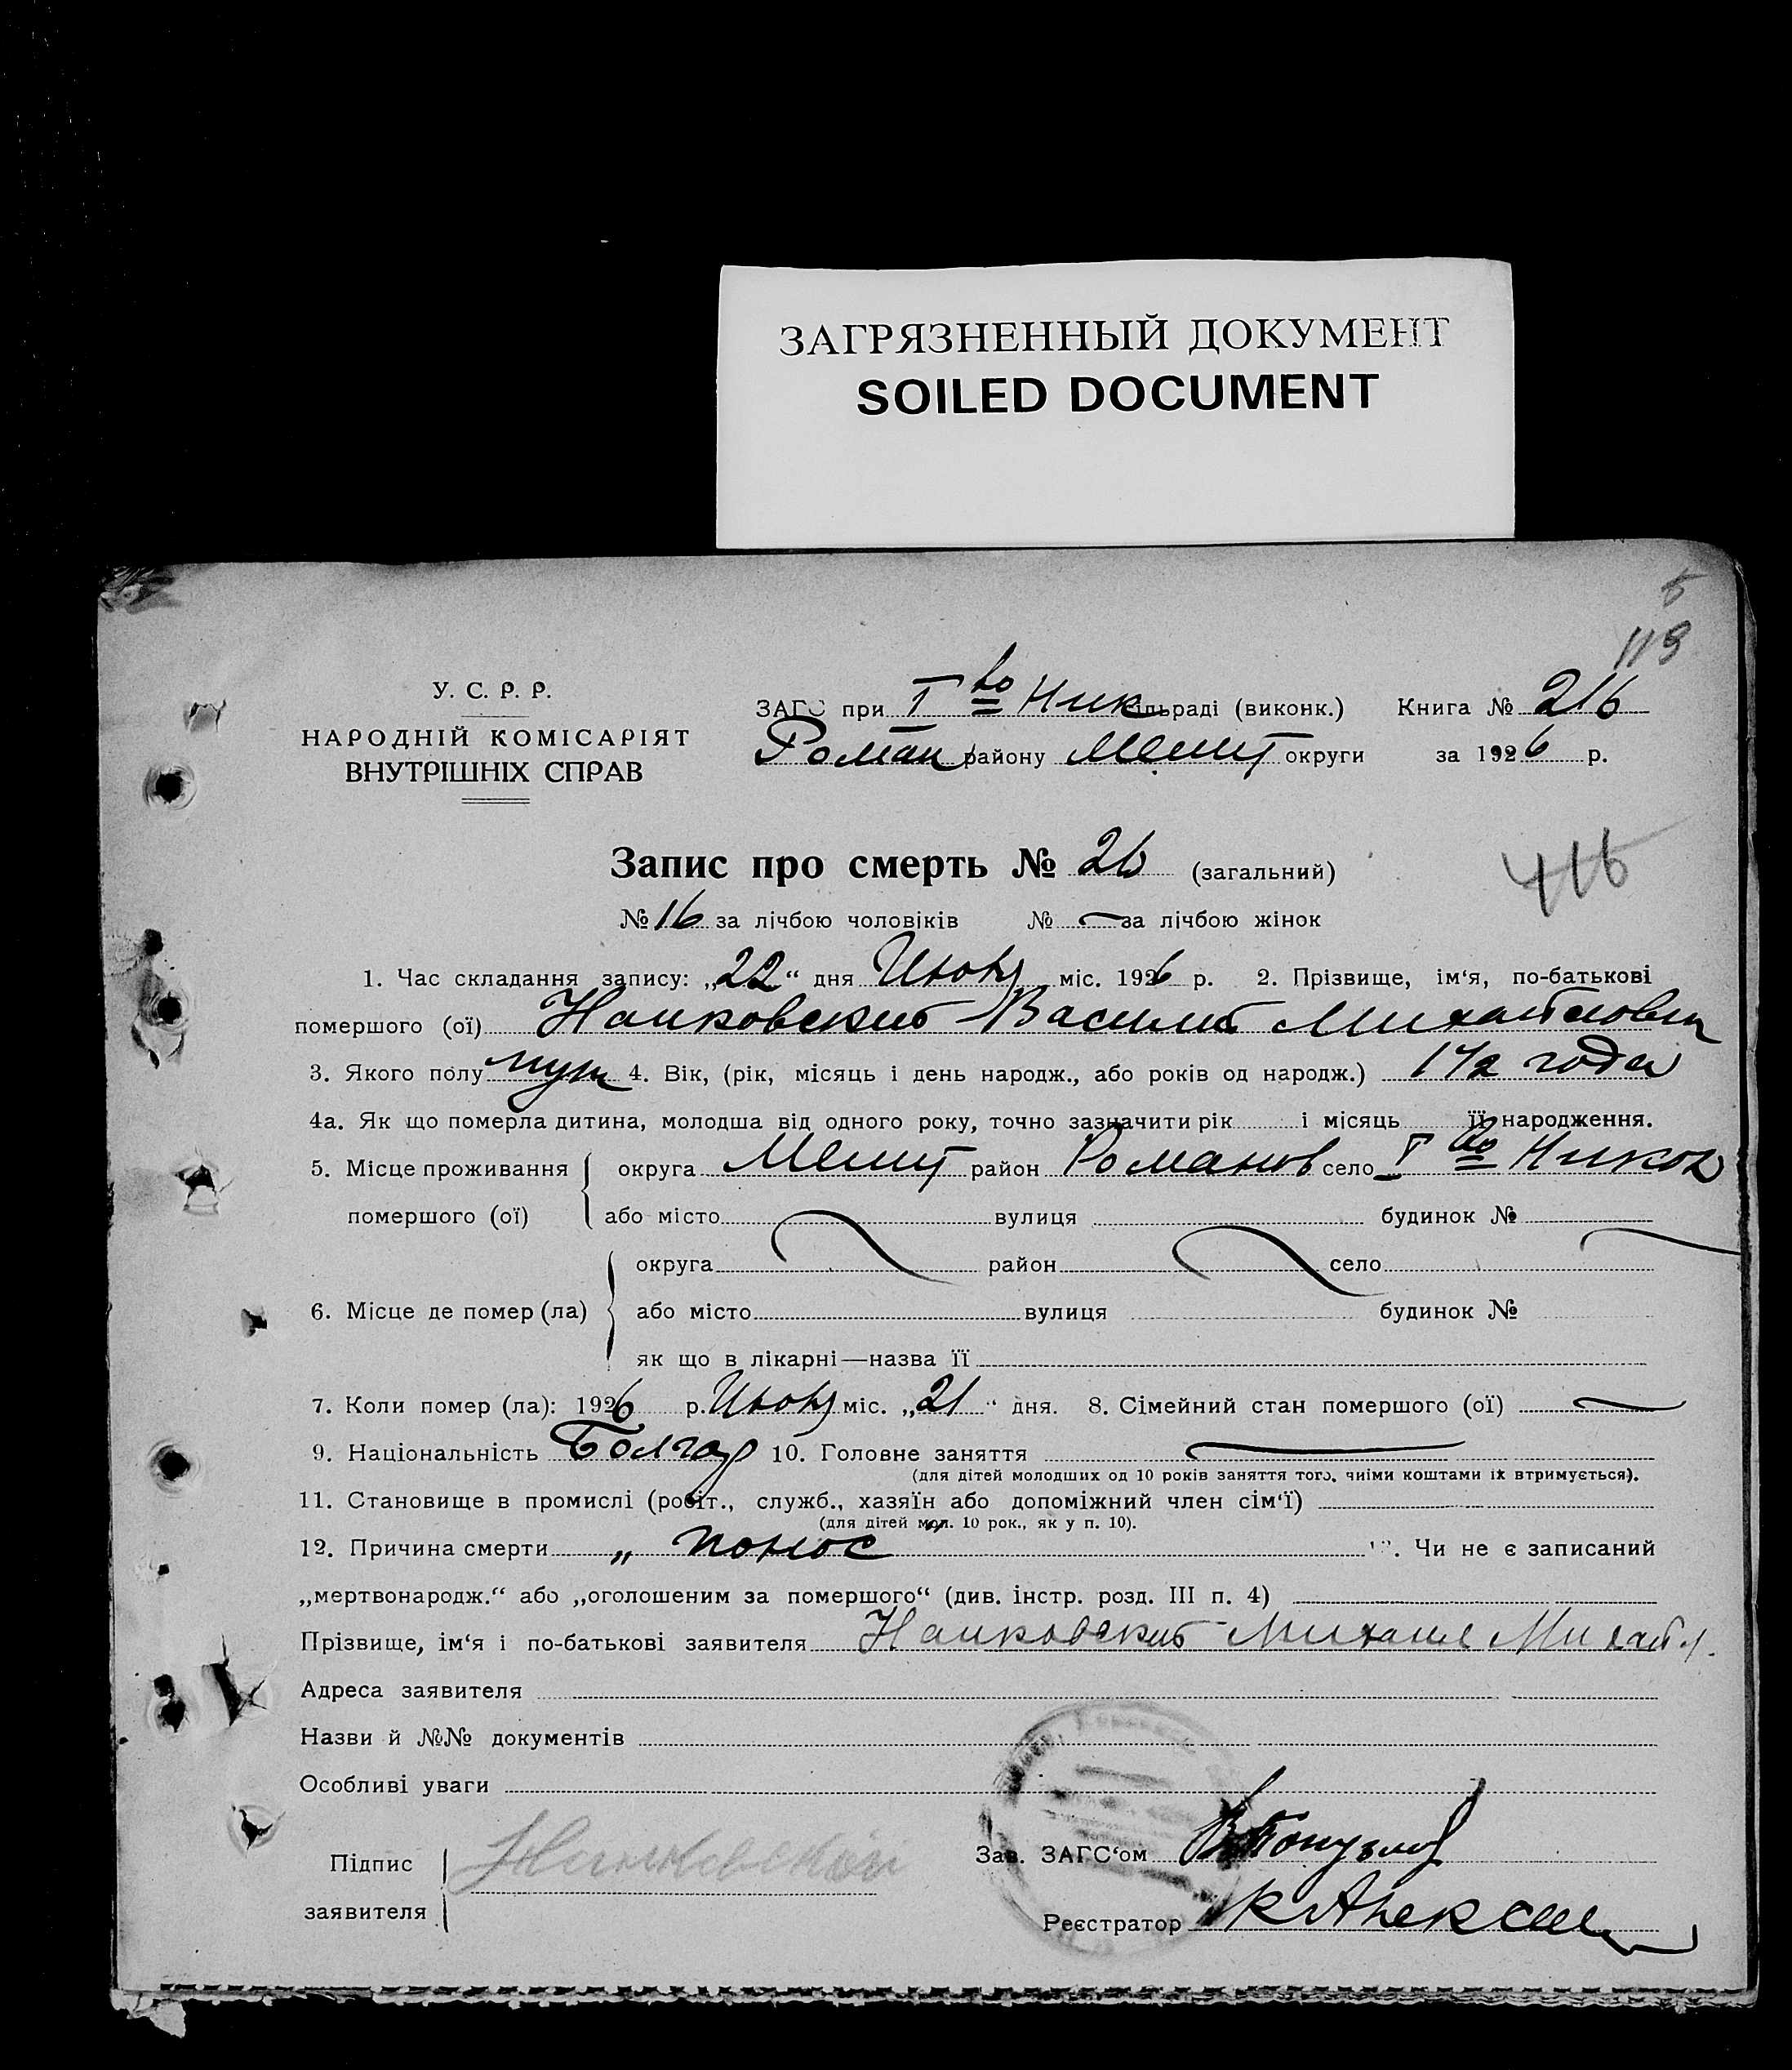 ЗАГРЯЗНЕННЫЙ ДОКУМЕНТ
SOILED DOCUMENT
119
У. С. Р. Р.
НАРОДНІЙ КОМІСАРІЯТ
ВНУТРІШНІХ СПРАВ
ЗАГС при І во Ник ільраді (виконк.) Книга № 216
Роман району Мелит округи за 1926 р.
Запис про смерть № 26 (загальний)
416
№ 16 за лічбою чоловіків № — за лічбою жінок
1. Час складання запису: „22“ дня Июня міс. 1926 р. 2. Прізвище, ім‘я, по-батькові
помершого (ої) Василий Михайлович
3. Якого полу муж 4. Вік, (рік, місяць і день народж., або років од народж.) 1 1/2 года
4а. Як що померла дитина, молодша від одного року, точно зазначити рік і місяць її народження.
5. Місце проживання округа Мелит район Романов село І во Никол
помершого (ої) або місто вулиця будинок №
округа район село
6. Місце де помер (ла) або місто вулиця будинок №
як що в лікарні—назва її
7. Коли помер (ла): 1926 р. Июня міс. „21“ дня. 8. Сімейний стан помершого (ої) —
9. Національність Болгар 10. Головне заняття —
(для дітей молодших од 10 років заняття того, чиїми коштами їх втримується).
11. Становище в промислі (робіт., служб., хазяїн або допоміжний член сім‘ї)
(для дітей мол. 10 рок., як у п. 10).
12. Причина смерти „понос“ Чи не є записаний
„мертвонародж.“ або „оголошеним за помершого“ (див. інстр. розд. III п. 4)
Прізвище, ім‘я і по-батькові заявителя Михаил Михайл.
Адреса заявителя
Назви й №№ документів
Особливі уваги
Підпис
Зав. ЗАГС‘ом
заявителя
Реєстратор